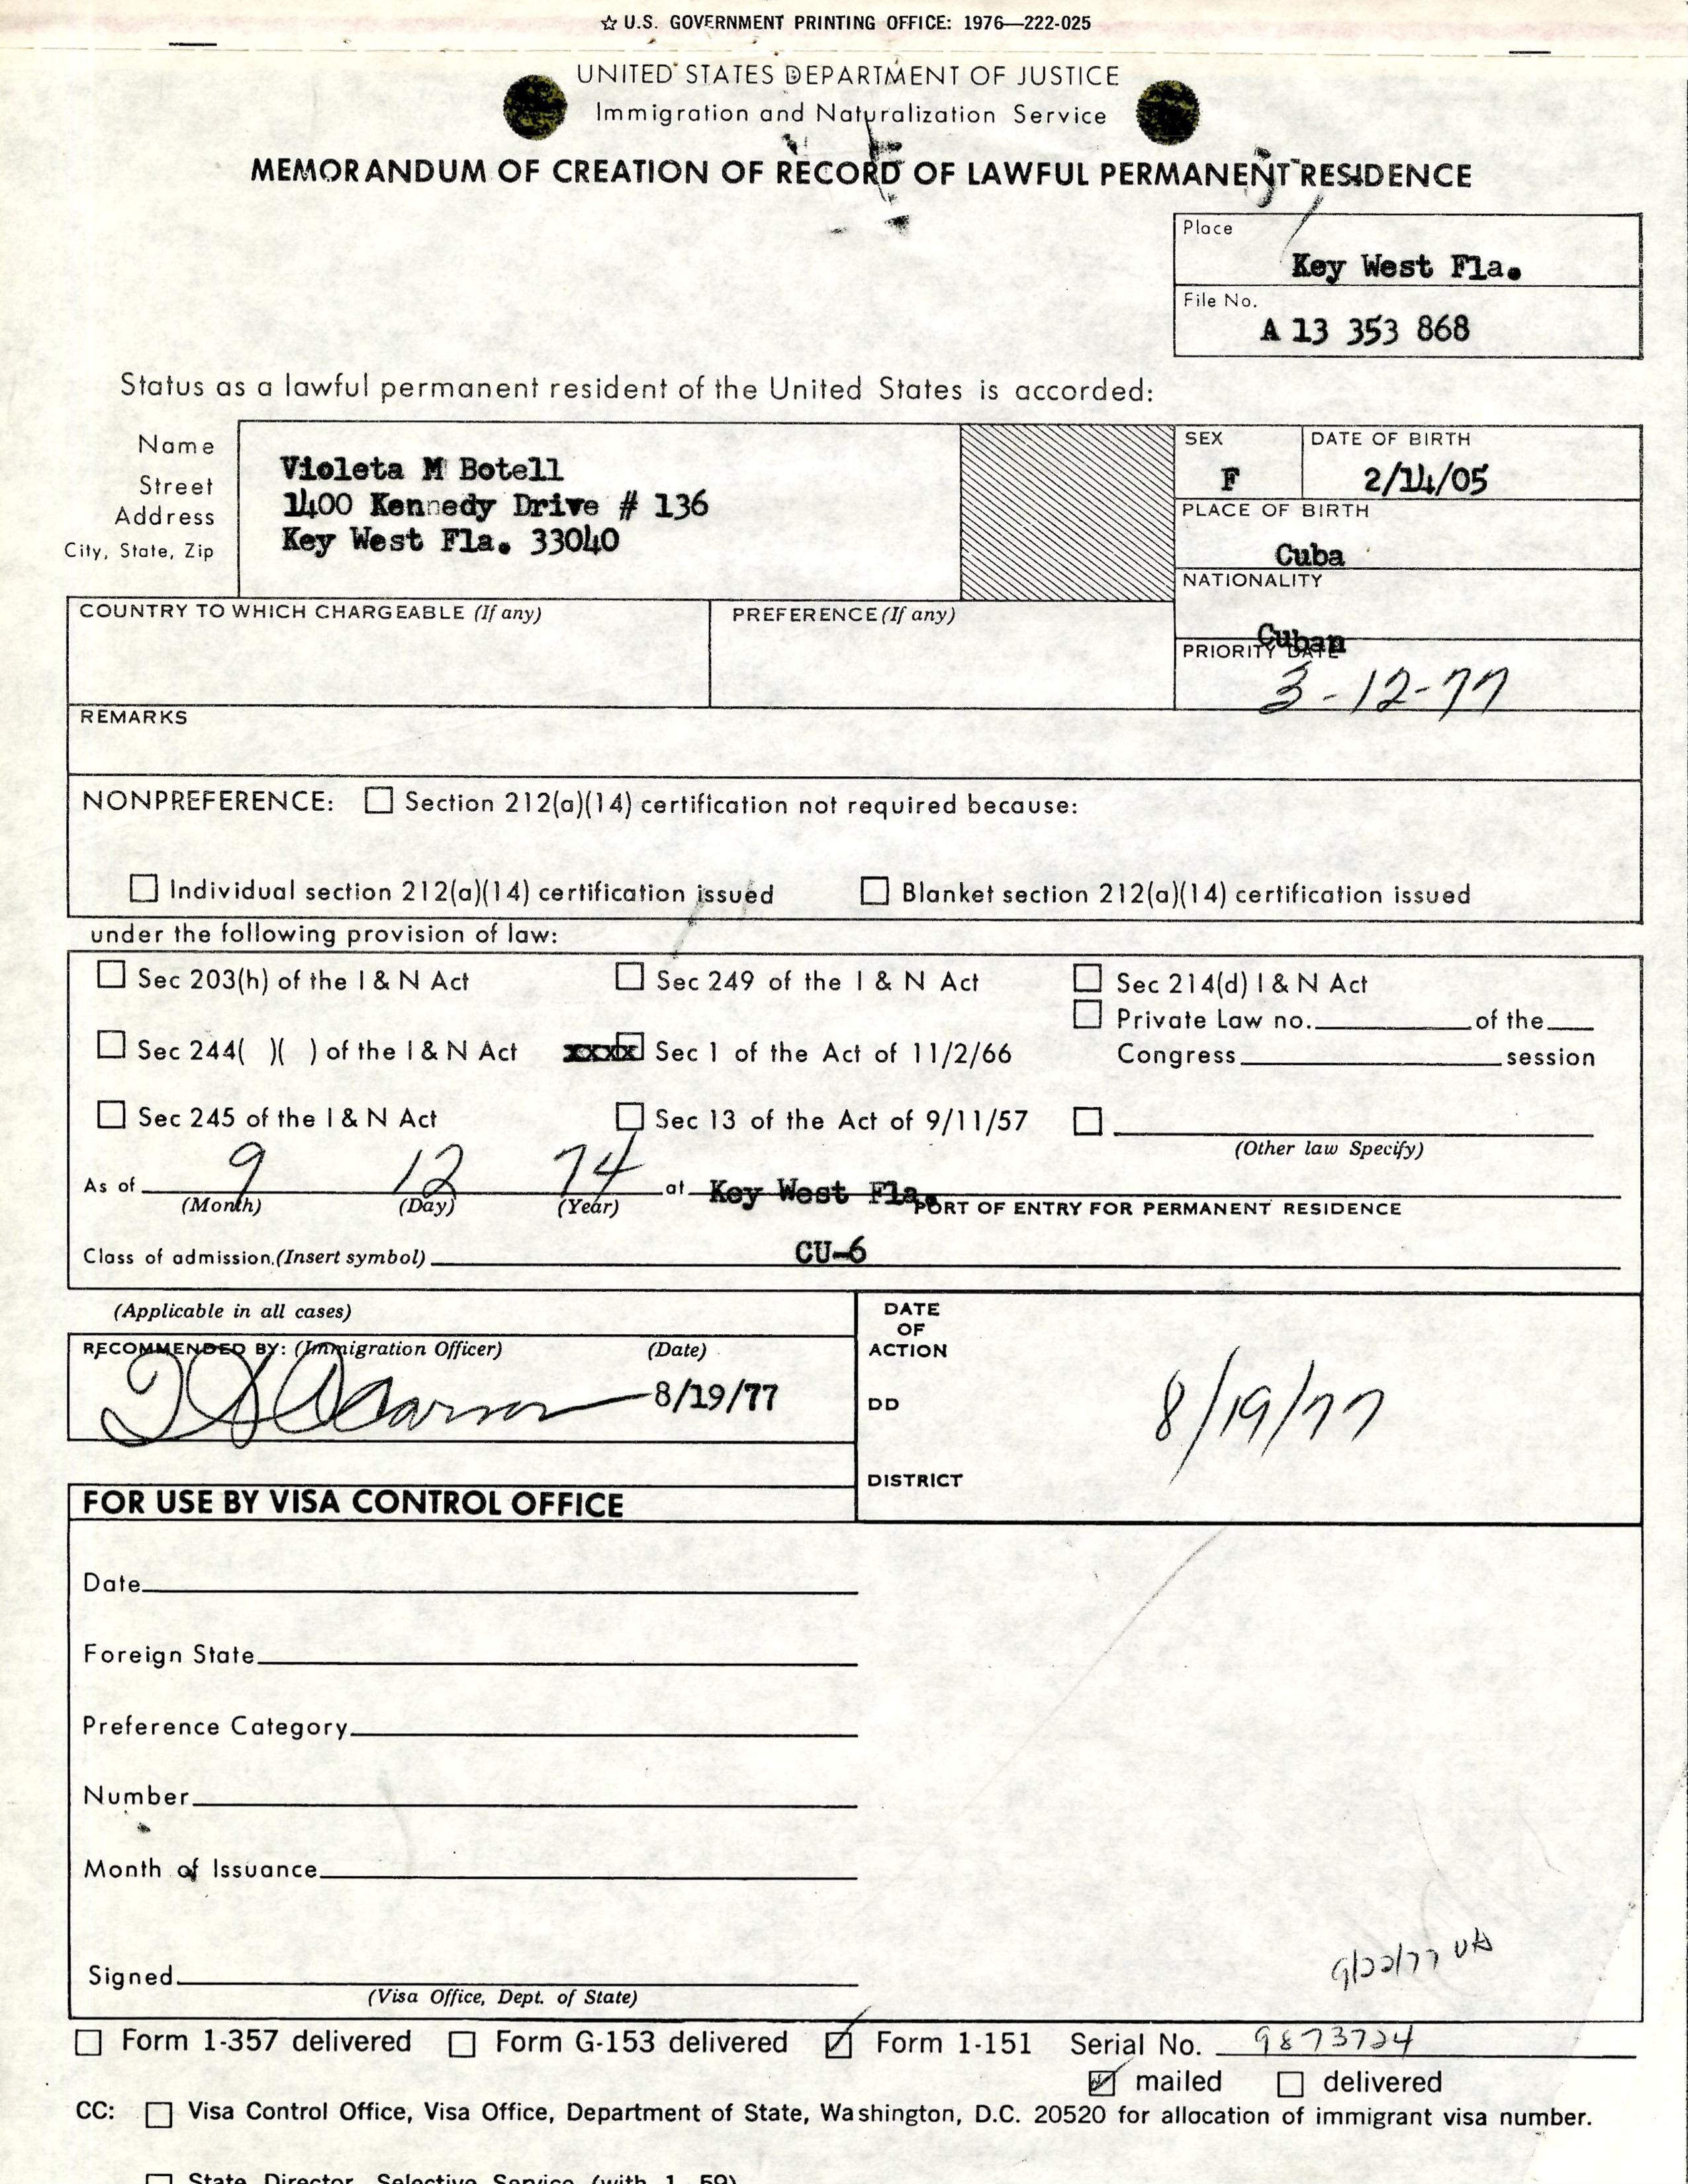 ☆ U.S. GOVERNMENT PRINTING OFFICE: 1976—222-025
UNITED STATES DEPARTMENT OF JUSTICE
Immigration and Naturalization Service
MEMORANDUM OF CREATION OF RECORD OF LAWFUL PERMANENT RESIDENCE
Place
Key West Fla.
File No.
A 13 353 868
Status as a lawful permanent resident of the United States is accorded:
Name
Street
Address
City, State, Zip
Violeta M Botell
1400 Kennedy Drive # 136
Key West Fla. 33040
SEX
F
DATE OF BIRTH
2/14/05
PLACE OF BIRTH
Cuba
NATIONALITY
Cuban
COUNTRY TO WHICH CHARGEABLE (If any)
PREFERENCE (If any)
PRIORITY DATE
3-12-77
REMARKS
NONPREFERENCE: ☐ Section 212(a)(14) certification not required because:
☐ Individual section 212(a)(14) certification issued ☐ Blanket section 212(a)(14) certification issued
under the following provision of law:
☐ Sec 203(h) of the I & N Act ☐ Sec 249 of the I & N Act ☐ Sec 214(d) I & N Act
☐ Private Law no. of the
☐ Sec 244( )( ) of the I & N Act xxxx Sec 1 of the Act of 11/2/66 Congress session
☐ Sec 245 of the I & N Act ☐ Sec 13 of the Act of 9/11/57 ☐
(Other law Specify)
As of 9 12 74 at Key West Fla.
(Month) (Day) (Year) PORT OF ENTRY FOR PERMANENT RESIDENCE
Class of admission.(Insert symbol) CU-6
(Applicable in all cases)
RECOMMENDED BY: (Immigration Officer) (Date)
8/19/77
DATE
OF
ACTION
DD
8/19/77
DISTRICT
FOR USE BY VISA CONTROL OFFICE
Date
Foreign State
Preference Category
Number
Month of Issuance
Signed
(Visa Office, Dept. of State)
9/22/77
☐ Form 1-357 delivered ☐ Form G-153 delivered ☑ Form 1-151 Serial No. 9873724
☑ mailed ☐ delivered
CC: ☐ Visa Control Office, Visa Office, Department of State, Washington, D.C. 20520 for allocation of immigrant visa number.
☐ State Director, Selective Service (with 1-59)